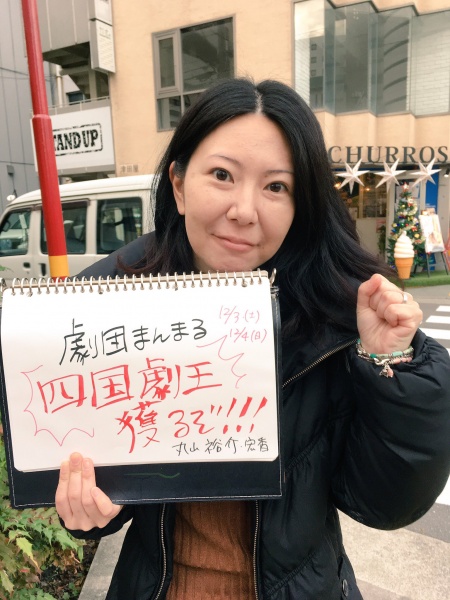 STAND UP
CHURROS
劇団まんまる
12/3(土)
12/4(日)
四国劇王
獲るぞ!!!
丸山裕介・宏香